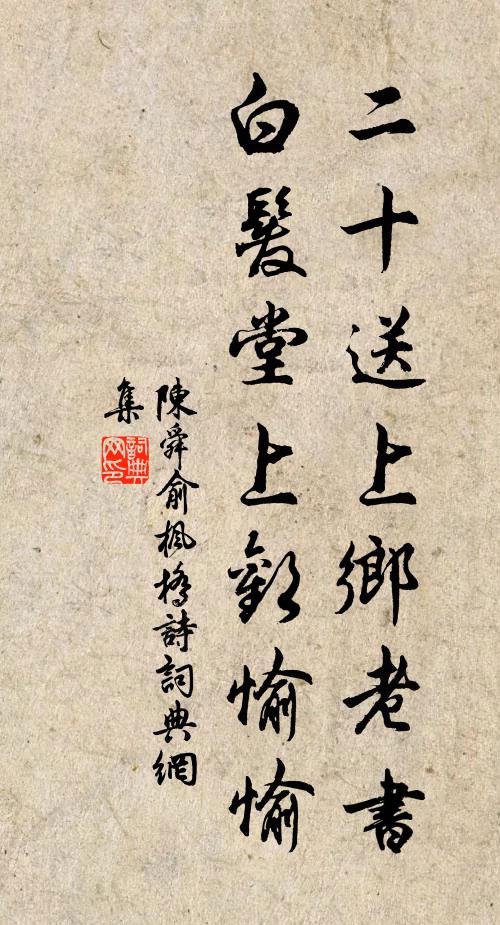 二十送上鄉老書
白髮堂上歡愉愉
陳舜俞楓橋詩詞典網
集
詞典網印